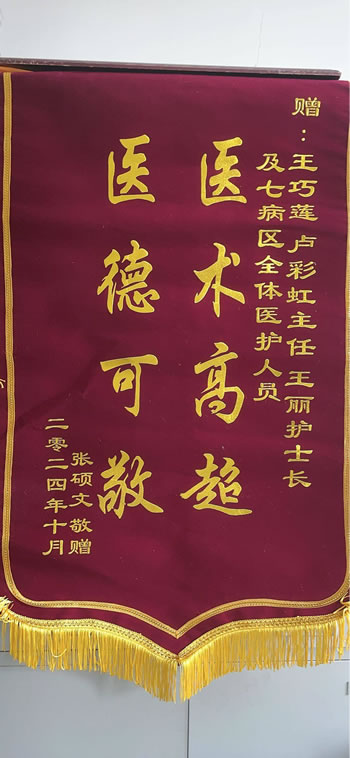 赠：王巧莲卢彩虹主任王丽护士长
及七病区全体医护人员
医术高超
医德可敬
张硕文敬赠
二零二四年十月